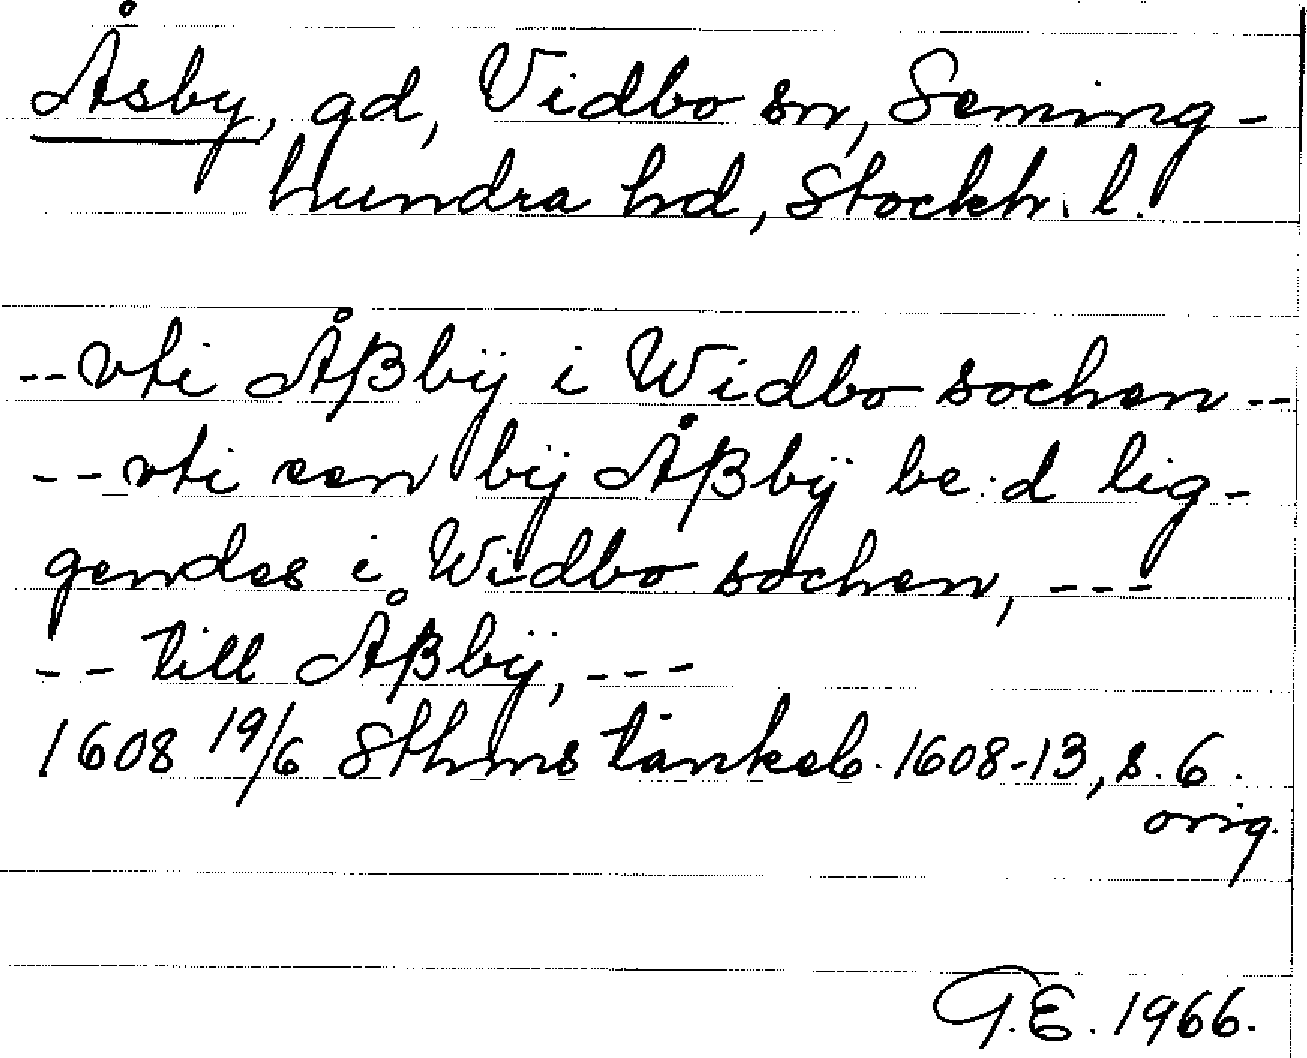 Åsby, gd, Vidbo sn, Seming-
hundra hd, Stockh. l.
-- vti Åßbÿ i Widbo sochen --
-- vti een bÿ Åßbÿ be:d lig-
gendes i Widbo sochen, ---
-- till Åßbÿ, ---
1608 19/6 Sthms tänkeb. 1608-13, s. 6.
orig.
G.E. 1966.